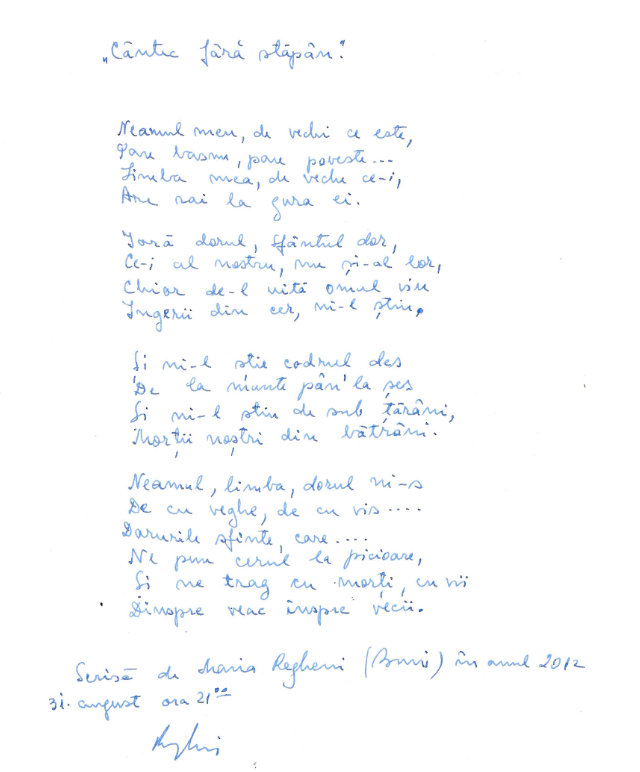 „Cântec fără stăpân."
Neamul meu, de vechi ce este,
Pare basm, pare poveste...
Limba mea, de veche ce-i,
Are rai la gura ei.
Iară dorul, sfântul dor,
Ce-i al nostru, nu și-al lor,
Chiar de-l uită omul viu
Îngerii din cer, ni-l știu.
Și ni-l știe codrul des
De la munte pân' la șes
Și ni-l știu de sub țărâni,
Morții noștri din bătrâni.
Neamul, limba, dorul ni-s
De cu veghe, de cu vis....
Darurile sfinte, care....
Ne pun cerul la picioare,
Și ne trag cu morți, cu vii
Dinspre veac înspre vecii.
Scrisă de Maria Regheni (Buni) în anul 2012
31. august ora 21⁰⁰